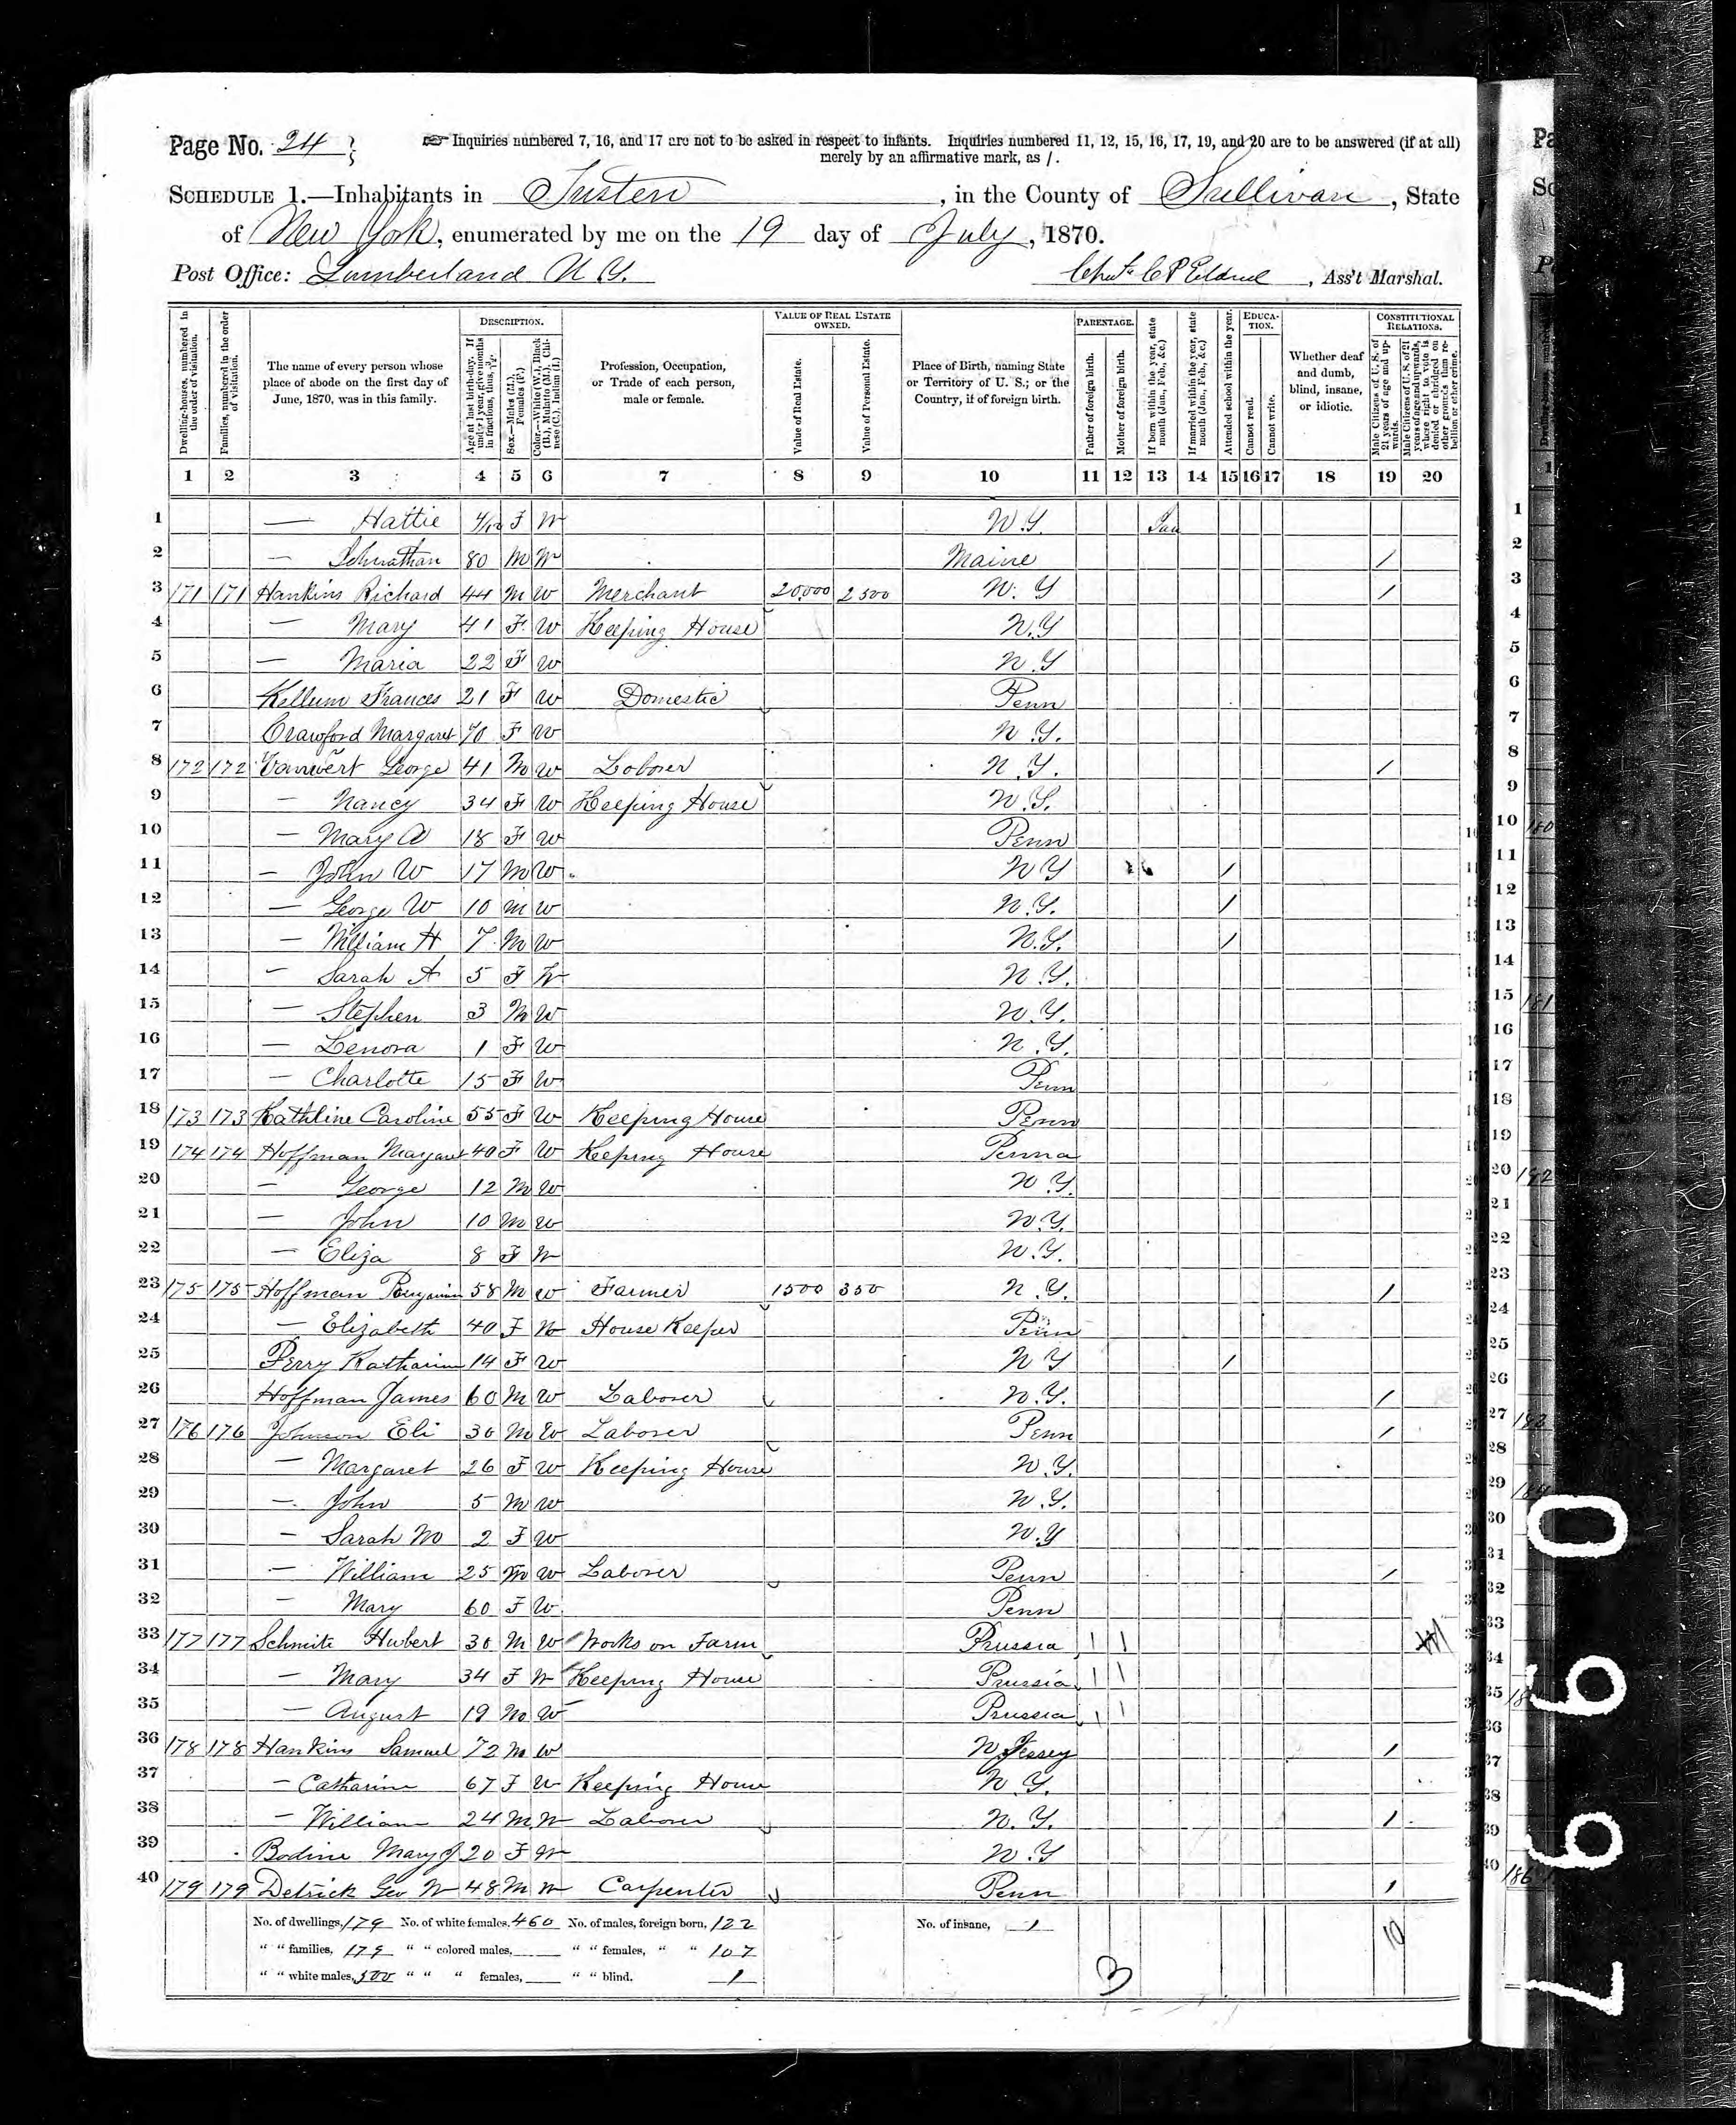 Page No. 24
☞ Inquiries numbered 7, 16, and 17 are not to be asked in respect to infants. Inquiries numbered 11, 12, 15, 16, 17, 19, and 20 are to be answered (if at all)
merely by an affirmative mark, as /.
SCHEDULE 1.—Inhabitants in Tusten, in the County of Sullivan, State
of New York, enumerated by me on the 19 day of July, 1870.
Post Office: Lumberland N.Y.
C P Eldred, Ass't Marshal.
Dwelling-houses, numbered in the order of visitation.
Families, numbered in the order of visitation.
The name of every person whose place of abode on the first day of June, 1870, was in this family.
DESCRIPTION.
Age at last birth-day. If under 1 year, give months in fractions, thus, 3/12.
Sex.—Males (M.), Females (F.)
Color.—White (W.), Black (B.), Mulatto (M.), Chinese (C.), Indian (I.)
Profession, Occupation, or Trade of each person, male or female.
VALUE OF REAL ESTATE OWNED.
Value of Real Estate.
Value of Personal Estate.
Place of Birth, naming State or Territory of U. S.; or the Country, if of foreign birth.
PARENTAGE.
Father of foreign birth.
Mother of foreign birth.
If born within the year, state month (Jan., Feb., &c.)
If married within the year, state month (Jan., Feb., &c.)
Attended school within the year.
EDUCATION.
Cannot read.
Cannot write.
Whether deaf and dumb, blind, insane, or idiotic.
CONSTITUTIONAL RELATIONS.
Male Citizens of U. S. of 21 years of age and upwards.
Male Citizens of U. S. of 21 years of age and upwards, whose right to vote is denied or abridged on other grounds than rebellion or other crime.
1 2 3 4 5 6 7 8 9 10 11 12 13 14 15 16 17 18 19 20
1 — Hattie 4/12 F W N.Y. Jan
2 — Johnathan 80 M W Maine /
3 171 171 Hankins Richard 44 M W Merchant 20,000 2500 N.Y /
4 — Mary 41 F W Keeping House N.Y
5 — Maria 22 F W N.Y
6 Kellum Frances 21 F W Domestic Penn
7 Crawford Margaret 70 F W N.Y.
8 172 172 Vanwert George 41 M W Laborer N.Y. /
9 — Nancy 34 F W Keeping House N.Y.
10 — Mary A 18 F W Penn
11 — John W 17 M W NY /
12 — George W 10 M W N.Y. /
13 — William H 7 M W N.Y. /
14 — Sarah A 5 F W N.Y.
15 — Stephen 3 M W N.Y.
16 — Lenora 1 F W N.Y.
17 — Charlotte 15 F W Penn
18 173 173 Kathline Caroline 55 F W Keeping House Penn
19 174 174 Hoffman Margaret 40 F W Keeping House Penna
20 — George 12 M W N.Y.
21 — John 10 M W N.Y.
22 — Eliza 8 F W N.Y.
23 175 175 Hoffman Benjamin 58 M W Farmer 1500 350 N.Y. /
24 — Elizabeth 40 F W House Keeper Penn
25 Perry Katharine 14 F W NY /
26 Hoffman James 60 M W Laborer N.Y. /
27 176 176 Johnson Eli 30 M W Laborer Penn /
28 — Margaret 26 F W Keeping House N.Y.
29 — John 5 M W N.Y.
30 — Sarah M 2 F W N.Y
31 — William 25 M W Laborer Penn /
32 — Mary 60 F W Penn
33 177 177 Schmitz Hubert 30 M W Works on Farm Prussia / /
34 — Mary 34 F W Keeping House Prussia / /
35 — August 19 M W Prussia / /
36 178 178 Hankins Samuel 72 M W N Jersey /
37 — Catharine 67 F W Keeping House N.Y.
38 — William 24 M W Laborer N.Y. /
39 Bodine Mary J 20 F W N.Y
40 179 179 Detrick Geo W 48 M W Carpenter Penn /
No. of dwellings, 179 No. of white females, 460 No. of males, foreign born, 122 No. of insane, 1
" " families, 179 " " colored males, " " females, " " 107
" " white males, 500 " " " females, " " blind. 1
3
10
0997